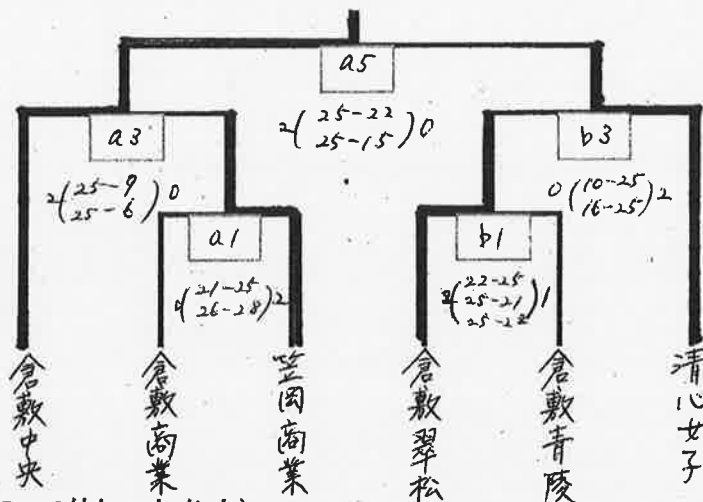 a5
2(25-22
25-15)0
a3
2(25-9
25-6)0
b3
0(10-25
16-25)2
a1
0(21-25
26-28)2
b1
2(22-25
25-21
25-22)1
倉敷中央
倉敷商業
笠岡商業
倉敷翠松
倉敷青陵
清心女子